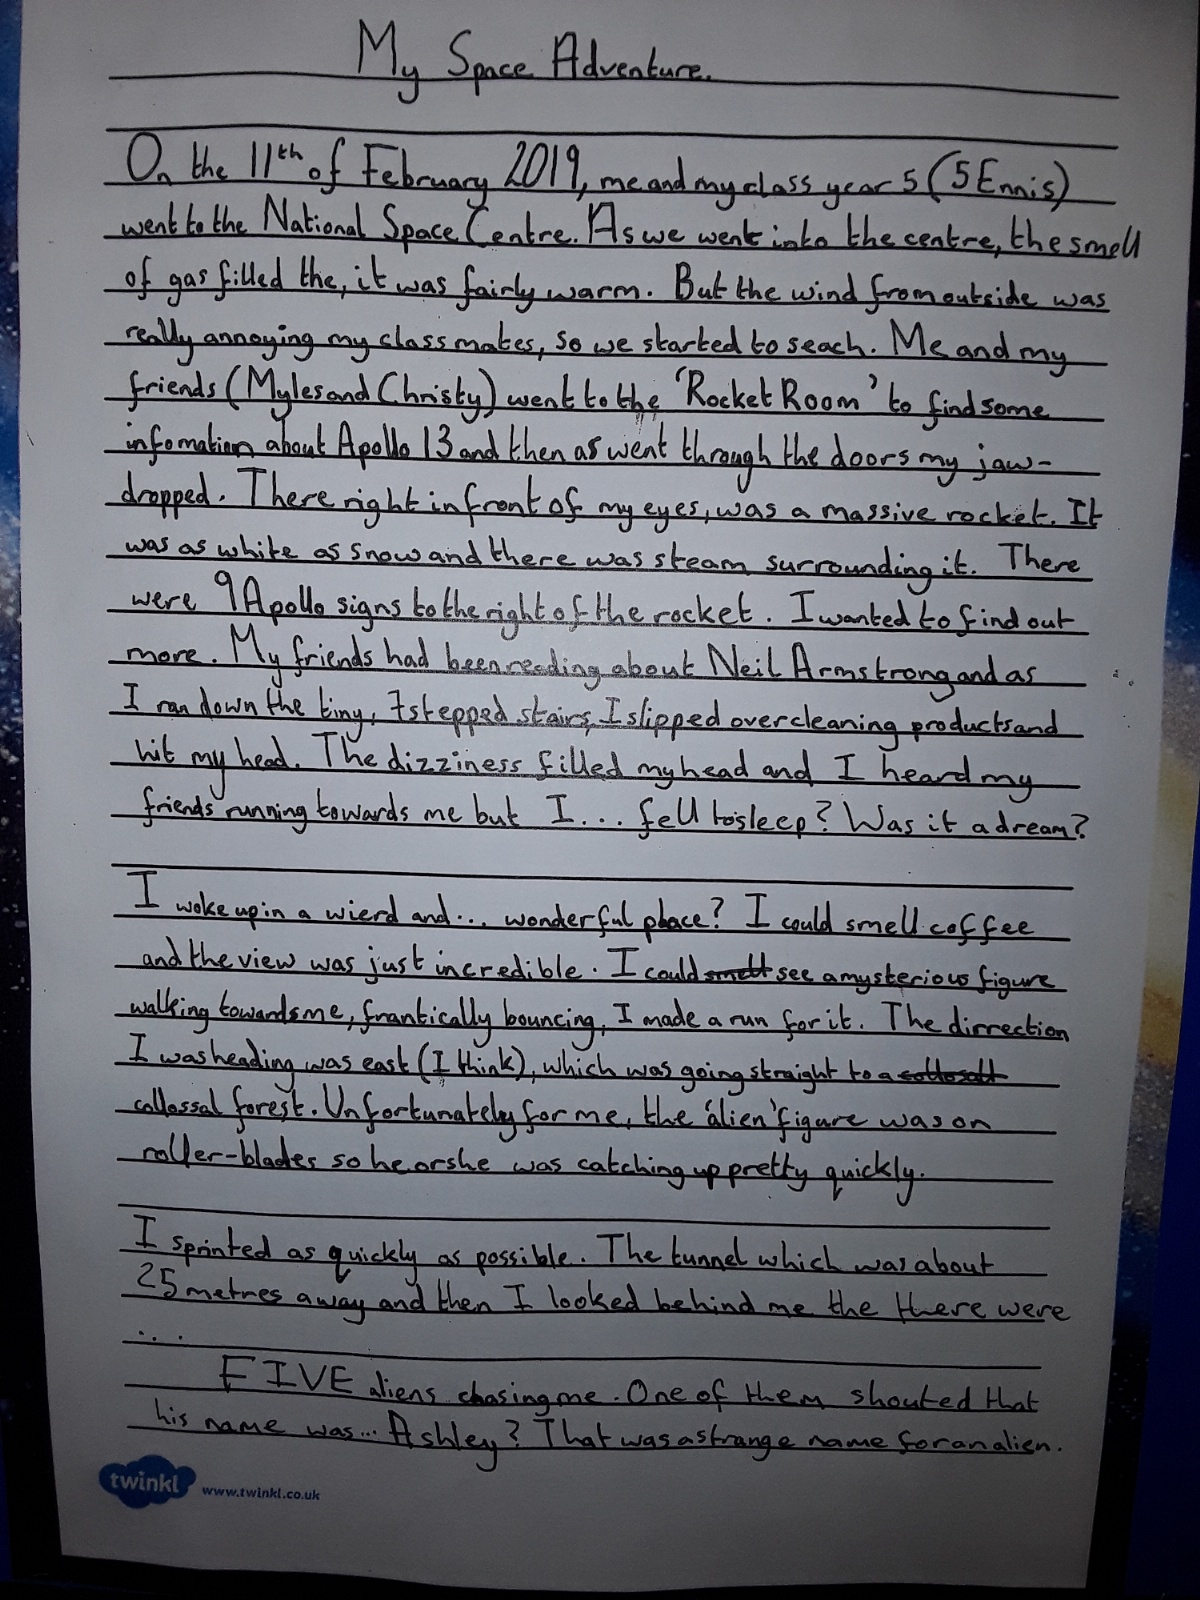 My Space Adventure.
On the 11th of February 2019, me and my class year 5 (5 Ennis)
went to the National Space Centre. As we went into the centre, the smell
of gas filled the, it was fairly warm. But the wind from outside was
really annoying my classmates, so we started to seach. Me and my
friends (Myles and Christy) went to the 'Rocket Room' to find some
infomation about Apollo 13 and then as went through the doors my jaw-
dropped. There right in front of my eyes, was a massive rocket. It
was as white as snow and there was steam surrounding it. There
were 9 Apollo signs to the right of the rocket. I wanted to find out
more. My friends had been reading about Neil Armstrong and as
I ran down the tiny, 7 stepped stairs, I slipped over cleaning products and
hit my head. The dizziness filled my head and I heard my
friends running towards me but I... fell to sleep? Was it a dream?
I woke up in a wierd and... wonderful place? I could smell coffee
and the view was just incredible. I could smell see a mysterious figure
walking towards me, frantically bouncing, I made a run for it. The dirrection
I was heading was east (I think), which was going straight to a collosalt
collossal forest. Unfortunately for me, the 'alien' figure was on
roller-blades so he or she was catching up pretty quickly.
I sprinted as quickly as possible. The tunnel which was about
25 metres away and then I looked behind me the there were
...
FIVE aliens chasing me. One of them shouted that
his name was... Ashley? That was a strange name for an alien.
twinkl www.twinkl.co.uk